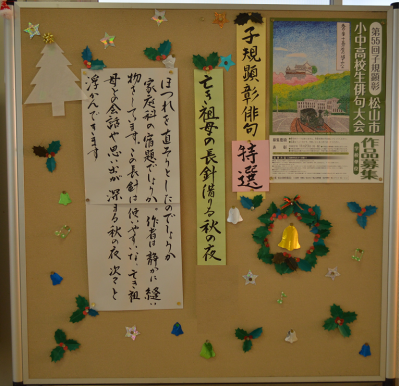 第55回子規顕彰 松山市
小中高校生俳句大会
作品募集
子規顕彰俳句
特選
亡き祖母の長針借りる秋の夜
ほつれを直そうとしたのでしょうか
家庭科の宿題でしょうか。作者は静かに縫い
物をしています。この長針は使いやすいな。亡き祖
母との会話や思い出が深まる秋の夜、次々と
浮かんできます